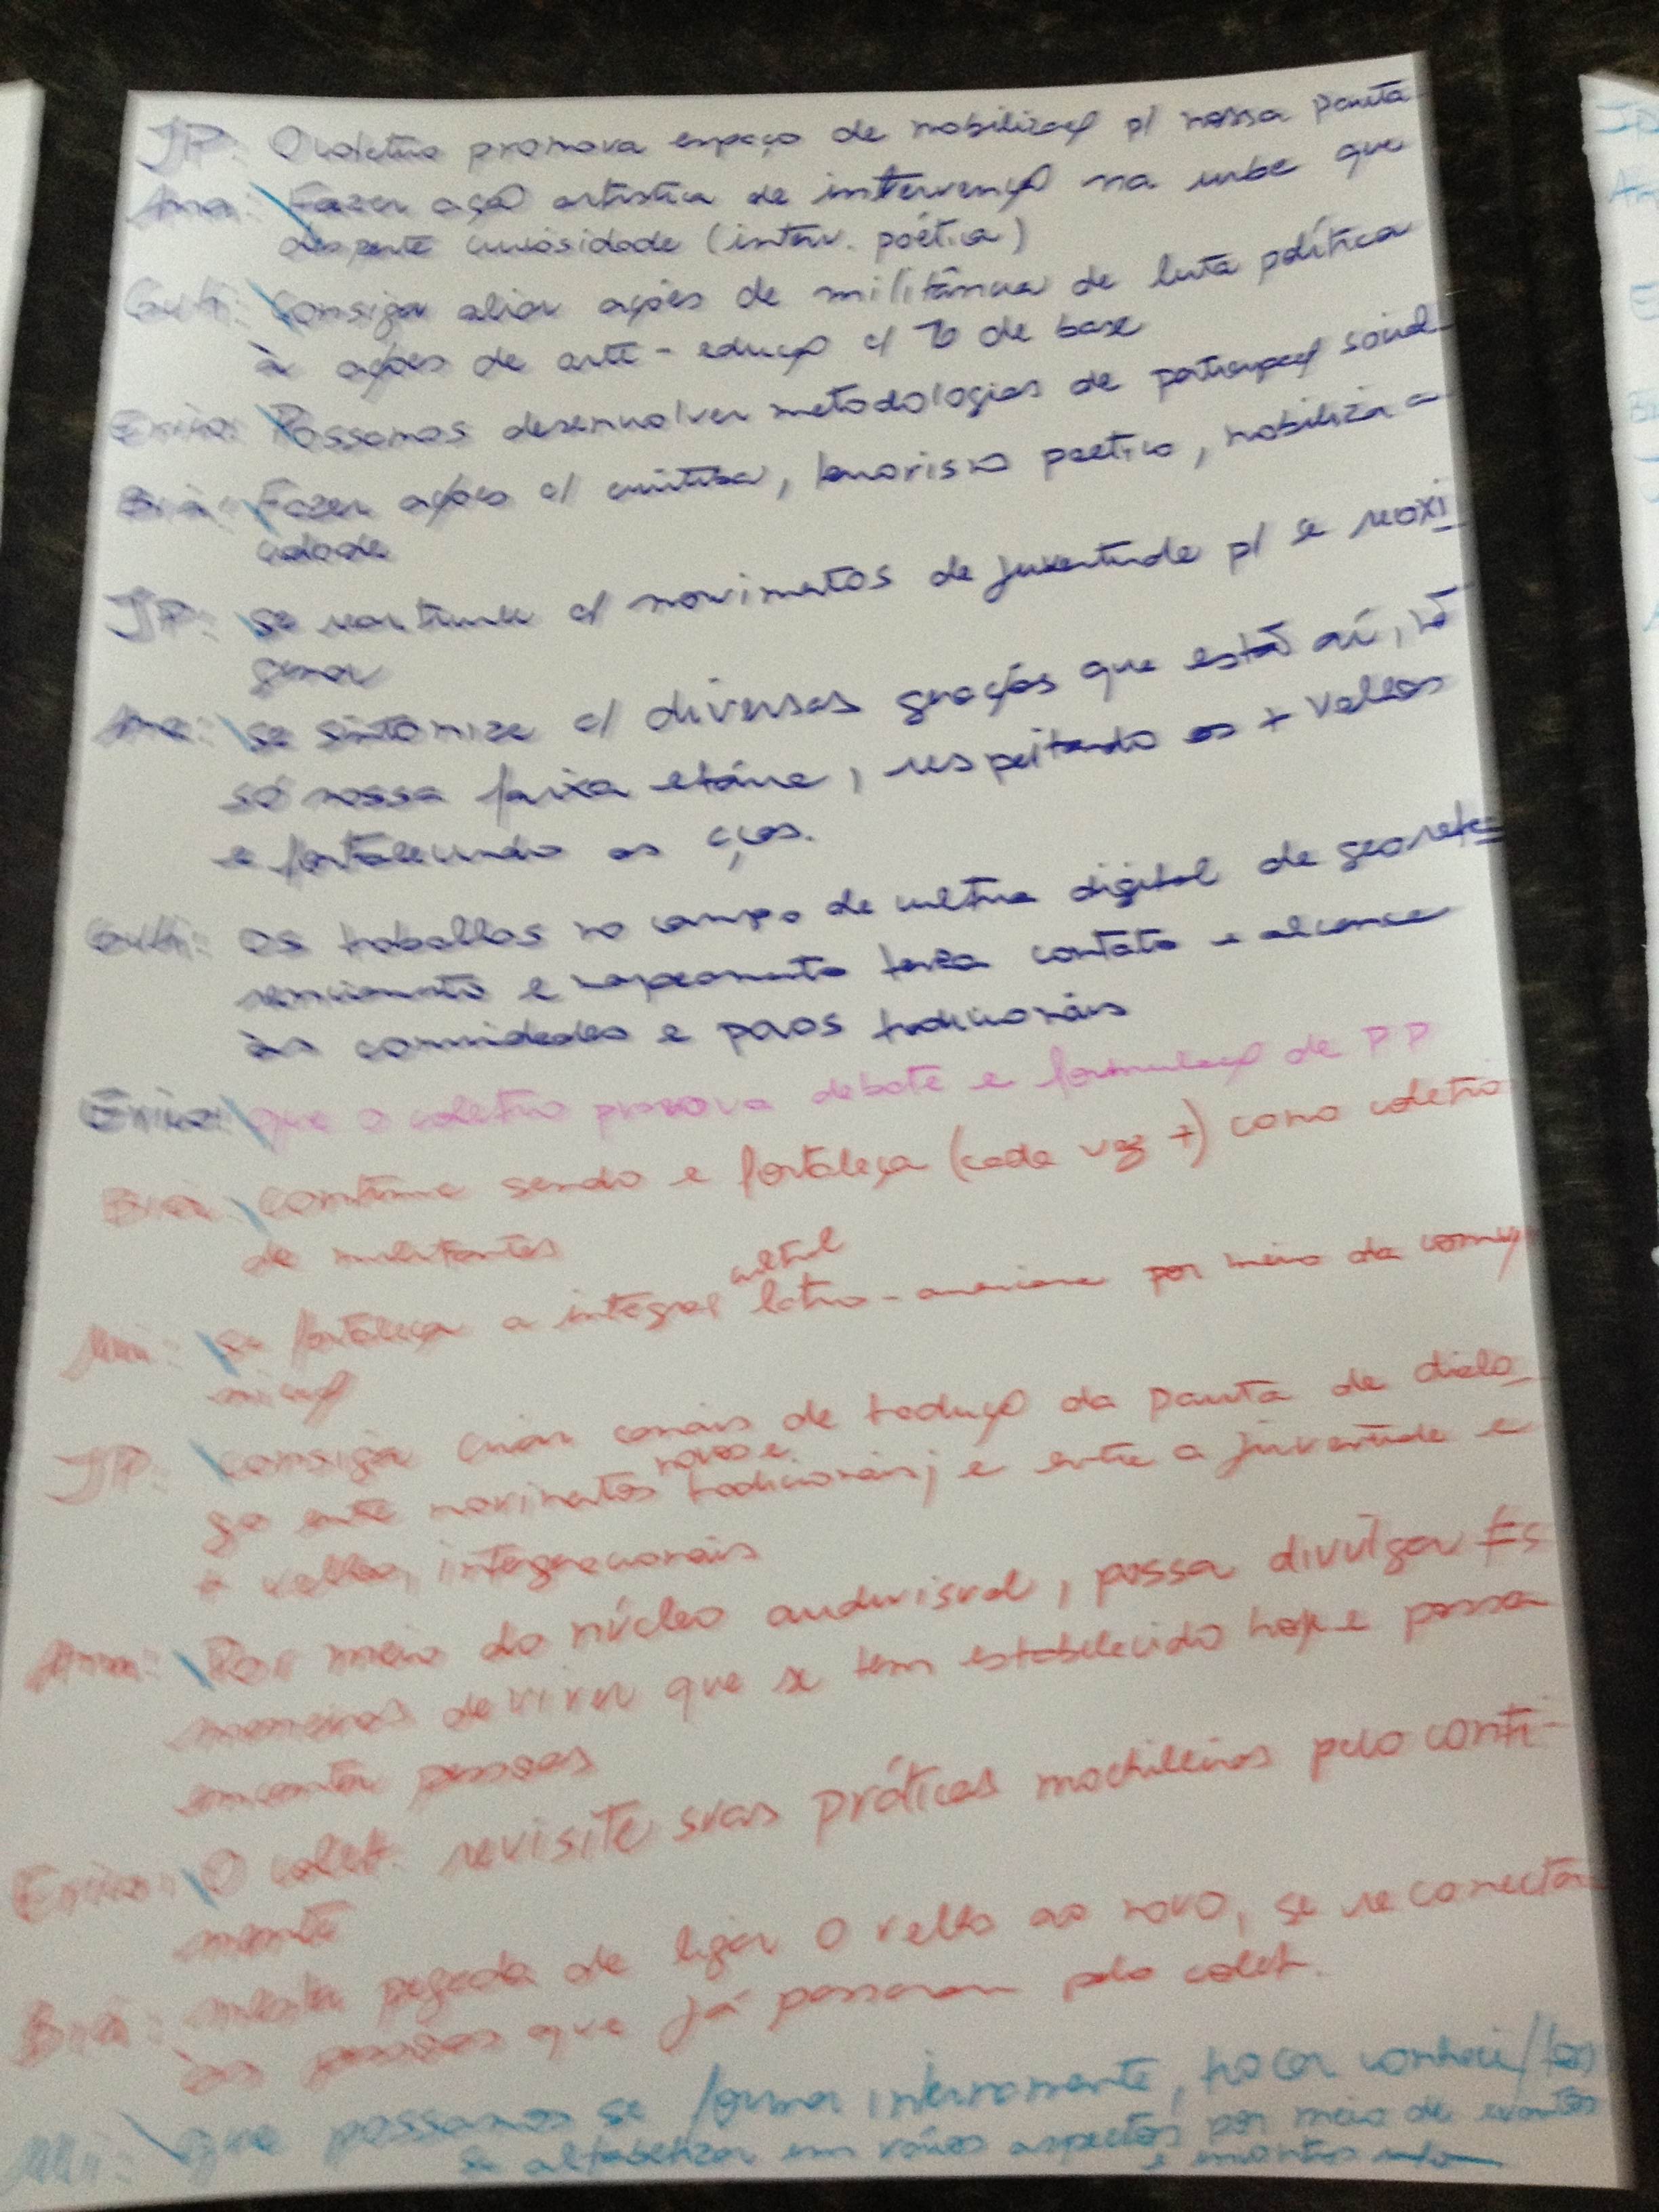 JP: O coletivo promova espaço de mobilizaç p/ nossa pauta
Ana: Fazer açao artística de intervençao na urbe que
desperte curiosidade (interv. poética)
consiga aliar ações de militância de luta política
à ações de arte-educaç c/ de base
Érica: Possamos desenvolver metodologias de participaç social
Bia: Fazer ações c/ curitiba, terrorismo poetico, mobiliza a
cidade
JP: se continue c/ movimentos de juventude p/ se reoxi
genar
Ana: se sintonize c/ diversas gerações que estão aí, ñ
só nossa faixa etária, respeitando os + velhos
e fortalecendo os
os trabalhos no campo de cultura digital de georefe
renciamento e mapeamento tenha contato e alcance
às comunidades e povos tradicionais
Érica: que o coletivo promova debate e formulaç de PP
Bia: continue sendo e fortaleça (cada vez +) como coletivo
de militantes
cultural
Mi: se fortaleça a integraç latino-americana por meio da comu
nicaç
JP: consiga criar canais de traduç da pauta de diálo
novos e
go entre movimentos tradicionais; e entre a juventude e
+ velhos, intergeracionais
Ana: Por meio do núcleo audiovisual, possa divulgar ≠s
maneiras de viver que se tem estabelecido hoje e possa
encontrar pessoas
Érica: O colet. revisite suas práticas mochileiras pelo conti-
nente
Bia: nesta pegada de ligar o velho ao novo, se reconectar
às pessoas que já passaram pelo colet.
Mi: que possamos se formar internamente, trocar conheci/tos
se alfabetizar em vários aspectos por meio de eventos
e